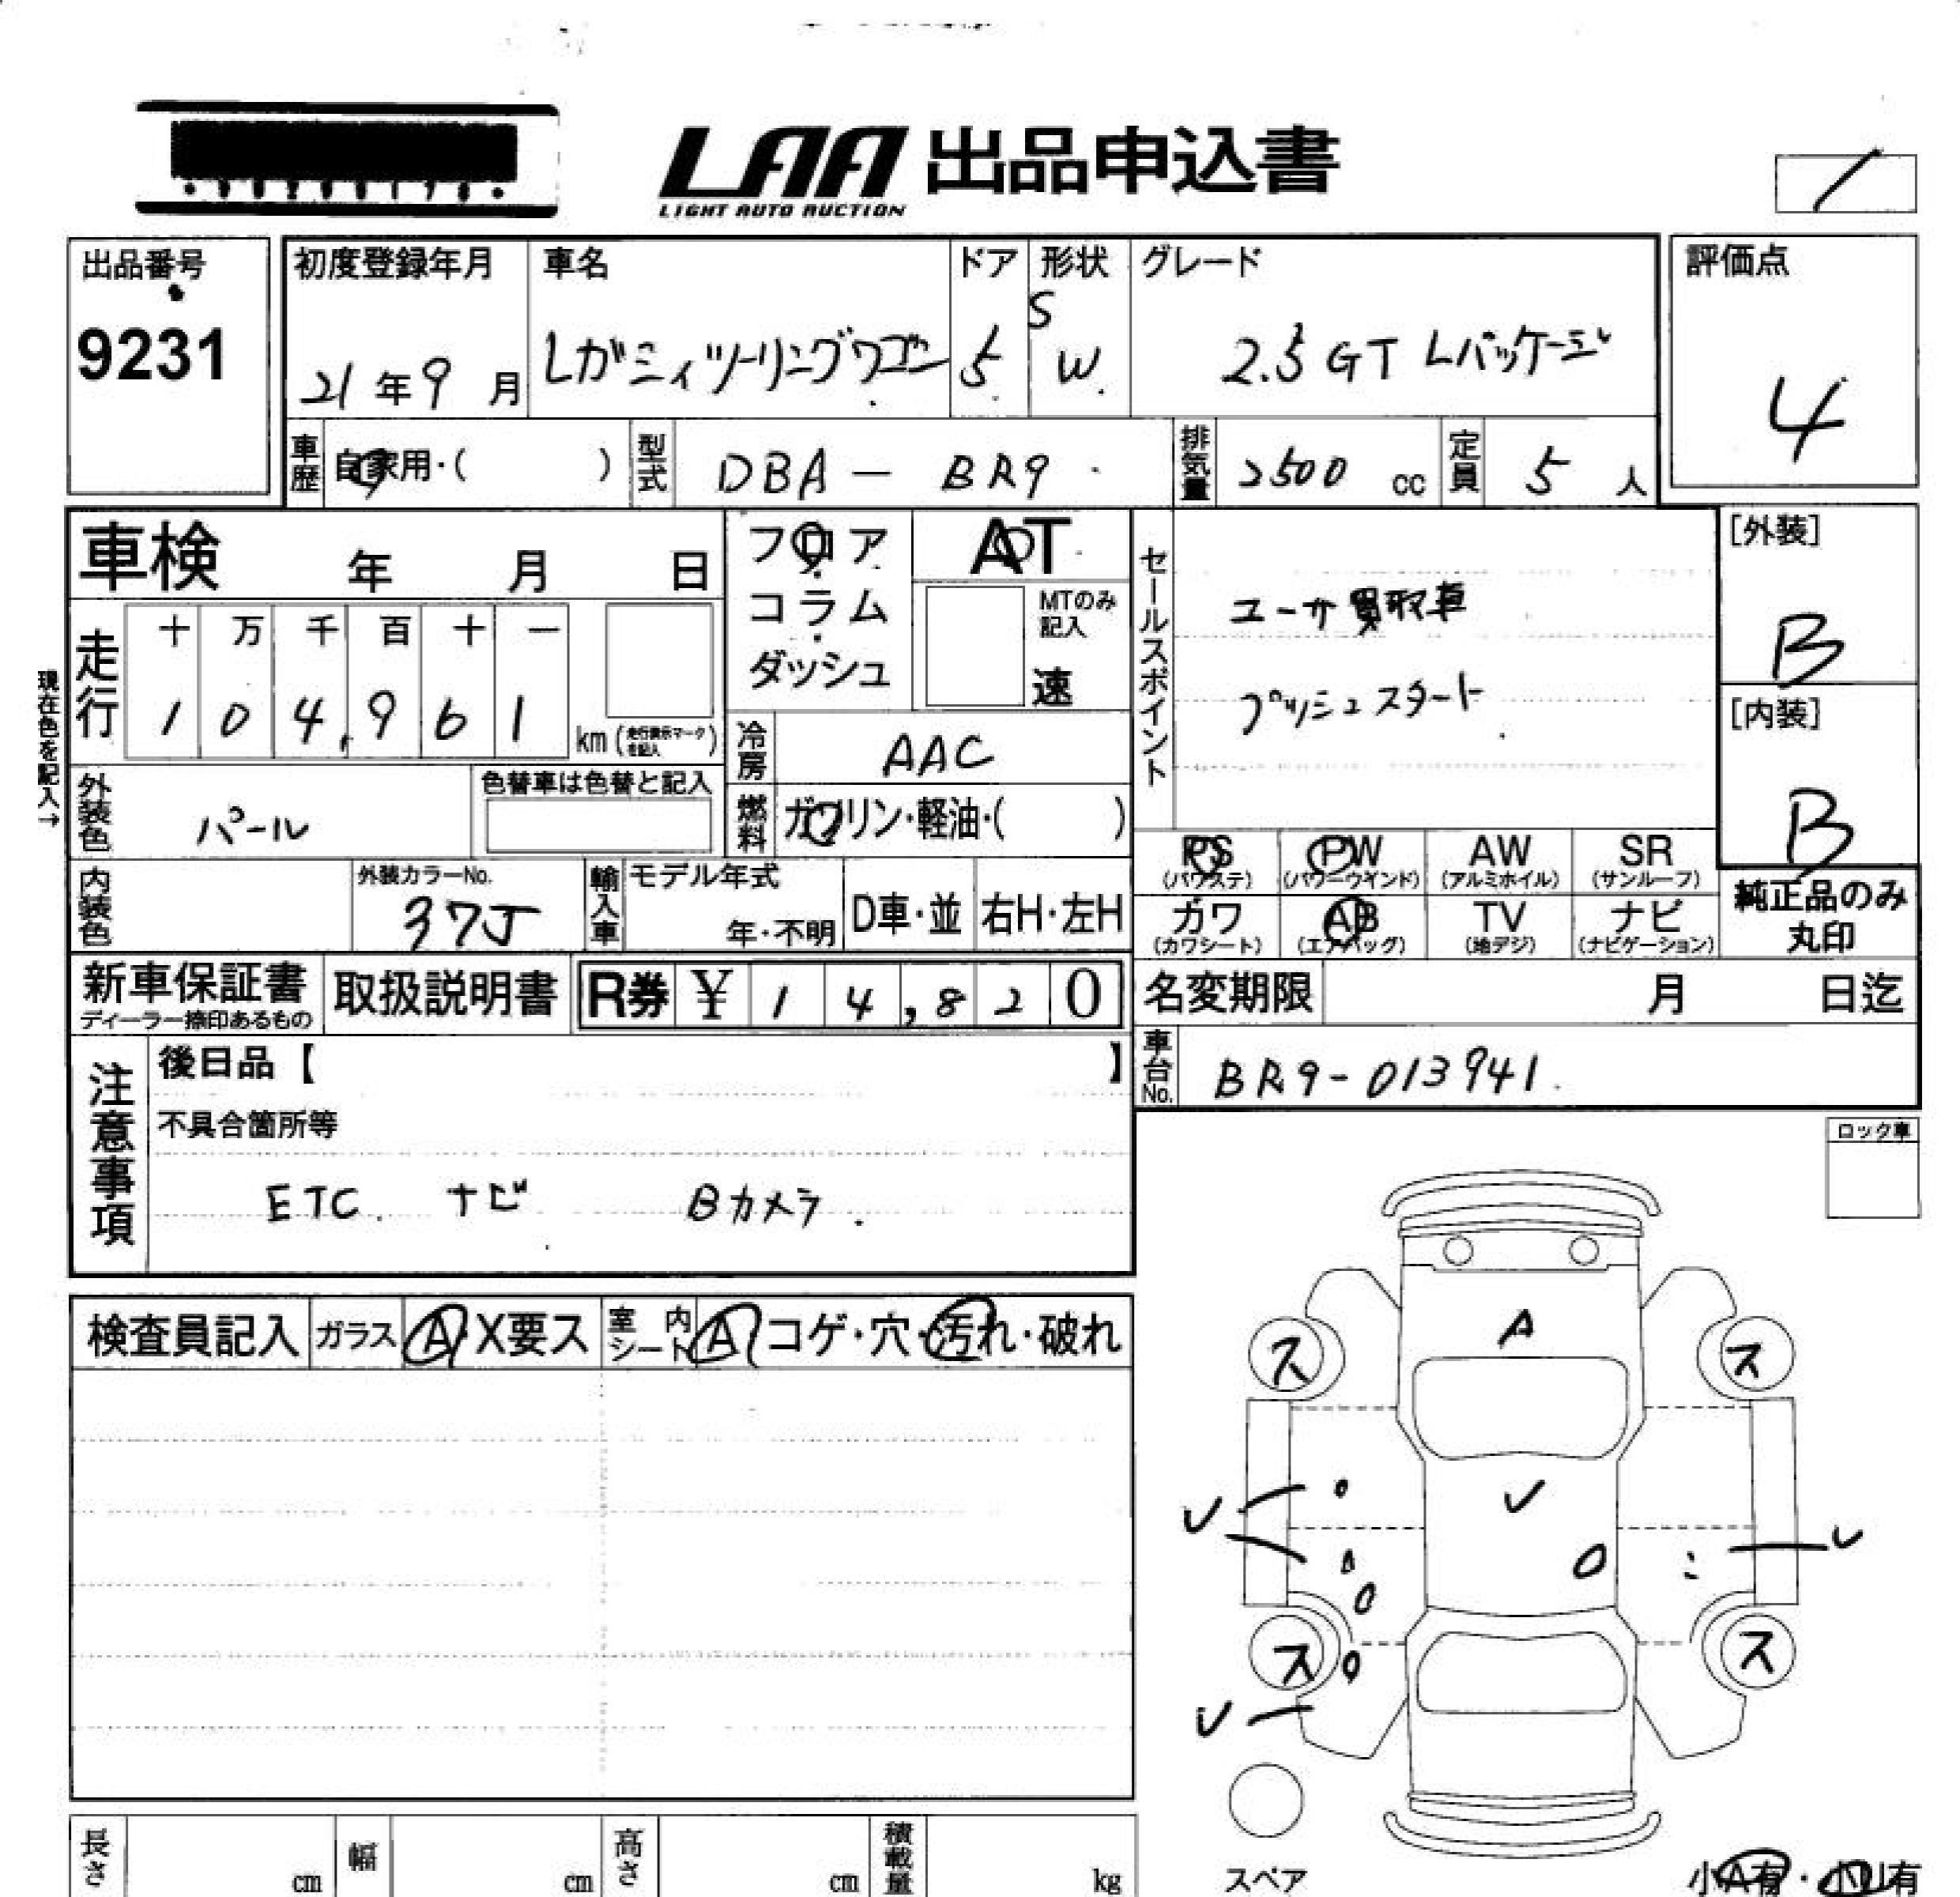 LAA 出品申込書
LIGHT AUTO AUCTION
出品番号
9231
初度登録年月
21年9月
車名
レガシィツーリングワゴン
ドア
5
形状
S
W.
グレード
2.5 GT Lパッケージ
評価点
4
車歴
自家用・( )
型式
DBA - BR9
排気量
2500 cc
定員
5 人
車検 年 月 日
フロア
コラム
ダッシュ
AT
MTのみ記入
速
セールスポイント
ユーザ買取車
プッシュスタート
[外装]
B
[内装]
B
現在色を記入→
走行
十 万 千 百 十 一
1 0 4, 9 6 1
km (走行表示マークを記入)
冷房
AAC
燃料
ガソリン・軽油・( )
外装色
パール
色替車は色替と記入
内装色
外装カラーNo.
37J
輸入車
モデル年式
年・不明
D車・並
右H・左H
PS
(パワステ)
PW
(パワーウインド)
AW
(アルミホイル)
SR
(サンルーフ)
カワ
(カワシート)
AB
(エアバッグ)
TV
(地デジ)
ナビ
(ナビゲーション)
純正品のみ
丸印
新車保証書
ディーラー捺印あるもの
取扱説明書
R券 ¥ 1 4, 8 2 0
名変期限 月 日迄
車台No.
BR9-013941.
注意事項
後日品【 】
不具合箇所等
ETC. ナビ Bカメラ.
ロック車
検査員記入
ガラス
A・X要ス
室内
シート
A コゲ・穴・汚れ・破れ
A
ス ス
ス ス
スペア
小A有・小U有
長さ cm
幅 cm
高さ cm
積載量 kg